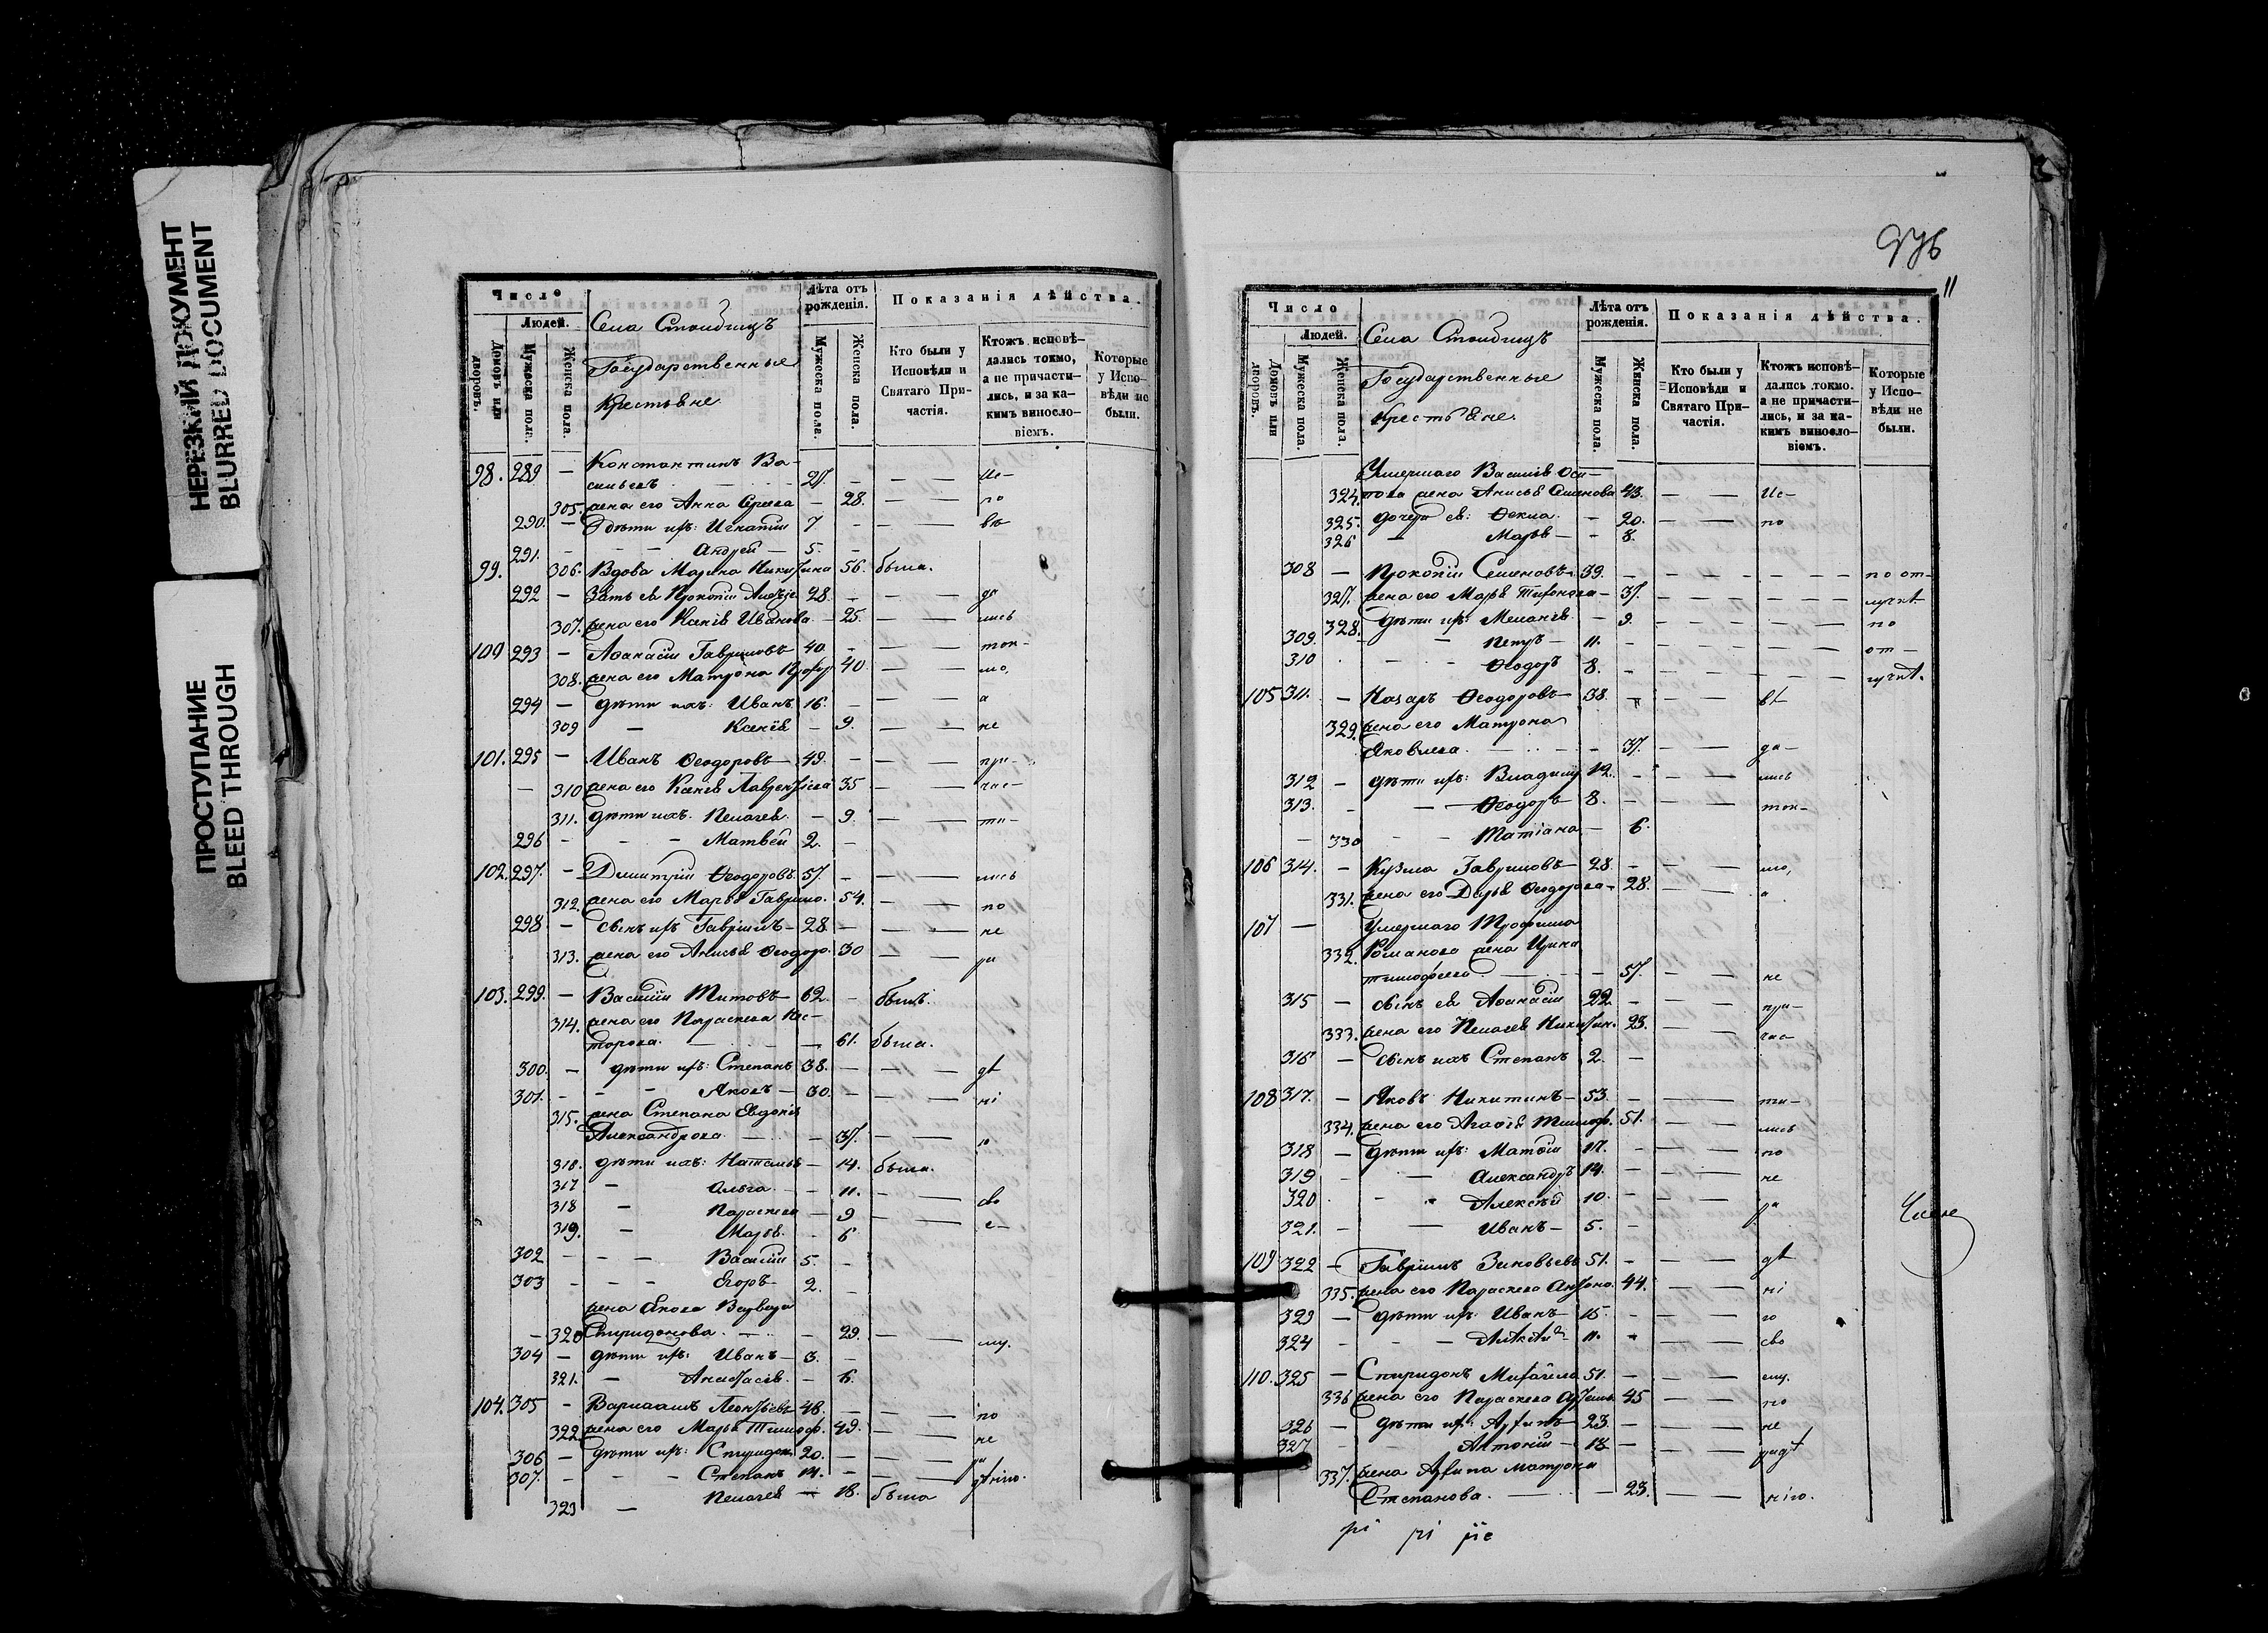 НЕРЕЗКИЙ ДОКУМЕНТ
BLURRED DOCUMENT
ПРОСТУПАНИЕ
BLEED THROUGH
Число
Людей.
Домовъ или дворовъ.
Мужеска пола.
Женска пола.
Села
Государственные
Крестьяне
Лѣта отъ рожденія.
Мужеска пола.
Женска пола.
Показанія дѣйства.
Кто были у Исповѣди и Святаго Причастія.
Ктожъ исповѣдались токмо, а не причастились, и за какимъ винословіемъ.
Которые у Исповѣди не были.
98. 289 — Константинъ Ва-
сильевъ 27. — — Ис-
305. жена его Анна — 28. — по
290. — дѣти ихъ: Игнатій 7 — — вѣ-
291. — — Андрей — 5. —
99. 306. Вдова Марина Никитина 56. была.
292 — Зять ея Прокопій 28. — — да
307. жена его Ксенія Иванова — 25. — лись
100 293 — Аѳанасій Гавриловъ 40. — — ток-
308. жена его Матрона 40. — мо,
294 — дѣти ихъ: Иванъ 16. — — а
309 — Ксенія — 9. — не
101. 295 — Иванъ Ѳеодоровъ — 49. — — при-
— 310 жена его Ксенія Лаврентіева 35 — час-
311. дѣти ихъ. Пелагея — 9. — ти-
296 — — Матвей 2. —
102. 297. — Димитрій Ѳеодоровъ 57. — — лись
312. жена его Марья Гаврило. 54. — по
298 — сынъ ихъ Гавріилъ — 28 — — не
313. жена его Анисья Ѳеодоро. 30 — ра
103. 299. — Василій Титовъ — 62. — былъ.
314. жена его Параскева Нес-
торова. — 61. была.
300. — дѣти ихъ: Степанъ 38. — — дѣ
301. — — Яковъ — 30. — — ні
315. жена Степана Евдокія
Александрова — 37. — ю
316. дѣти ихъ: Наталья — 14. была.
317 — Ольга — 11. — сво
318 — Параскева — 9 — е-
319. — Марья. — 6
302 — — Василій 5. —
303 — — Егоръ 2. —
жена Якова Варвара
— 320 Спиридонова. — 29. — му.
304 — дѣти ихъ: Иванъ — 3. —
321. — Анастасія. — 6.
104. 305 — Варлаамъ Леонтіевъ 48. — — по
322 жена его Марья Тимоф. 49. — не
306 — дѣти ихъ: Спиридон. 20. — — ра
307. — — Степанъ 14. — — дѣнію.
323 — Пелагея — 18. была
11
Число
Людей.
Домовъ или дворовъ.
Мужеска пола.
Женска пола.
Села
Государственные
Крестьяне.
Лѣта отъ рожденія.
Мужеска пола.
Женска пола.
Показанія дѣйства.
Кто были у Исповѣди и Святаго Причастія.
Ктожъ исповѣдались токмо, а не причастились, и за какимъ винословіемъ.
Которые у Исповѣди не были.
Умершаго Василія Оси-
324 пова жена Анисья Семенова 43. — Ис-
325. дочери ея: Ѳекла — 20. — по
326 — Марья — 8.
308 — Прокопій Семеновъ 39. — — — по от-
327. жена его Марья — 37. — — лучкѣ
328. дѣти ихъ: Меланія — 9. — — по
309. — Петръ — 11. — — от-
310 — — Ѳеодоръ 8. — — лучкѣ.
105 311. — Назаръ Ѳеодоровъ — 38. — — вѣ
329. жена его Матрона
Яковлева — 37. — да-
312 — дѣти ихъ: Владимир 12. — — лись
313. — — Ѳеодоръ 8. — — ток-
— 330 — Татіана — 6.
106 314. — Кузма Гавриловъ — 28. — — мо,
331. жена его Дарья Ѳеодорова — 28. — а
107 — Умершаго Трофима
332. Романова жена Ирина
Тимофеева — 57. — не
315 — сынъ ея Аѳанасій 22. — — при-
333. жена его Пелагея Никитин. 23. — час-
316 — сынъ ихъ Степанъ 2. —
108 317. — Яковъ Никитинъ — 53. — — ти-
334. жена его Агаѳія Тимоф. 51. — лись
318 — дѣти ихъ: Матвѣй 17. — — по
319 — — Александръ 14. — — не
320 — — Алексѣй 10. — — ра
321. — — Иванъ — 5. —
109 322 — Гавріилъ Зиновьевъ 51. — — дѣ
335. жена его Параскева Антоно. 44. — ні
323 — дѣти ихъ: Иванъ — 15. — — ю
324 — — Алексѣй 11. — — сво
110. 325 — Спиридонъ 51. — — ему.
336 жена его Параскева 45 — по
326 — дѣти ихъ: Архипъ — 23. — — не
327 — — Антоній — 18 — — радѣ
337. жена Архипа Матрона
Степанова. — 23. — нію.